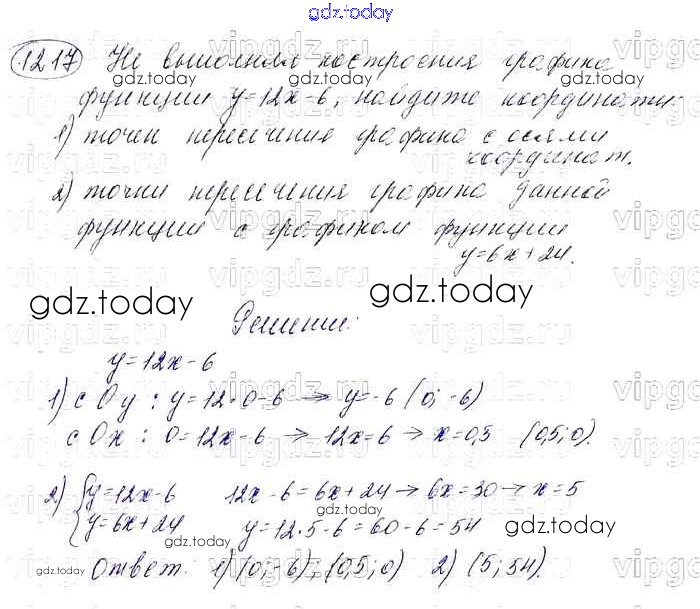 gdz.today
1217 Не выполняя построения графика
функции y=12x-6, найдите координаты:
1) точек пересечения графика с осями
координат.
2) точки пересечения графика данной
функции с графиком функции
y=6x+24.
gdz.today
gdz.today
Решение:
y=12x-6
1) с Oy : y=12·0-6 → y=-6 (0; -6)
с Ox : 0=12x-6 → 12x=6 → x=0,5 (0,5; 0).
2) { y=12x-6 12x-6=6x+24 → 6x=30 → x=5
y=6x+24 y=12·5-6=60-6=54
Ответ: 1) (0; -6); (0,5; 0) 2) (5; 54).
gdz.today